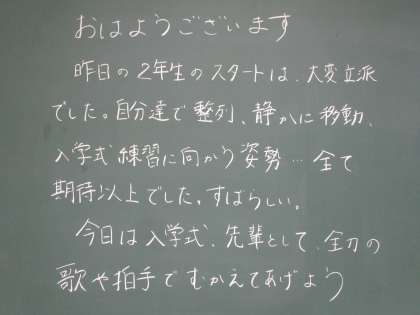 おはようございます
昨日の2年生のスタートは、大変立派
でした。自分達で整列、静かに移動、
入学式練習に向かう姿勢…全て
期待以上でした。すばらしい。
今日は入学式、先輩として、全力の
歌や拍手でむかえてあげよう